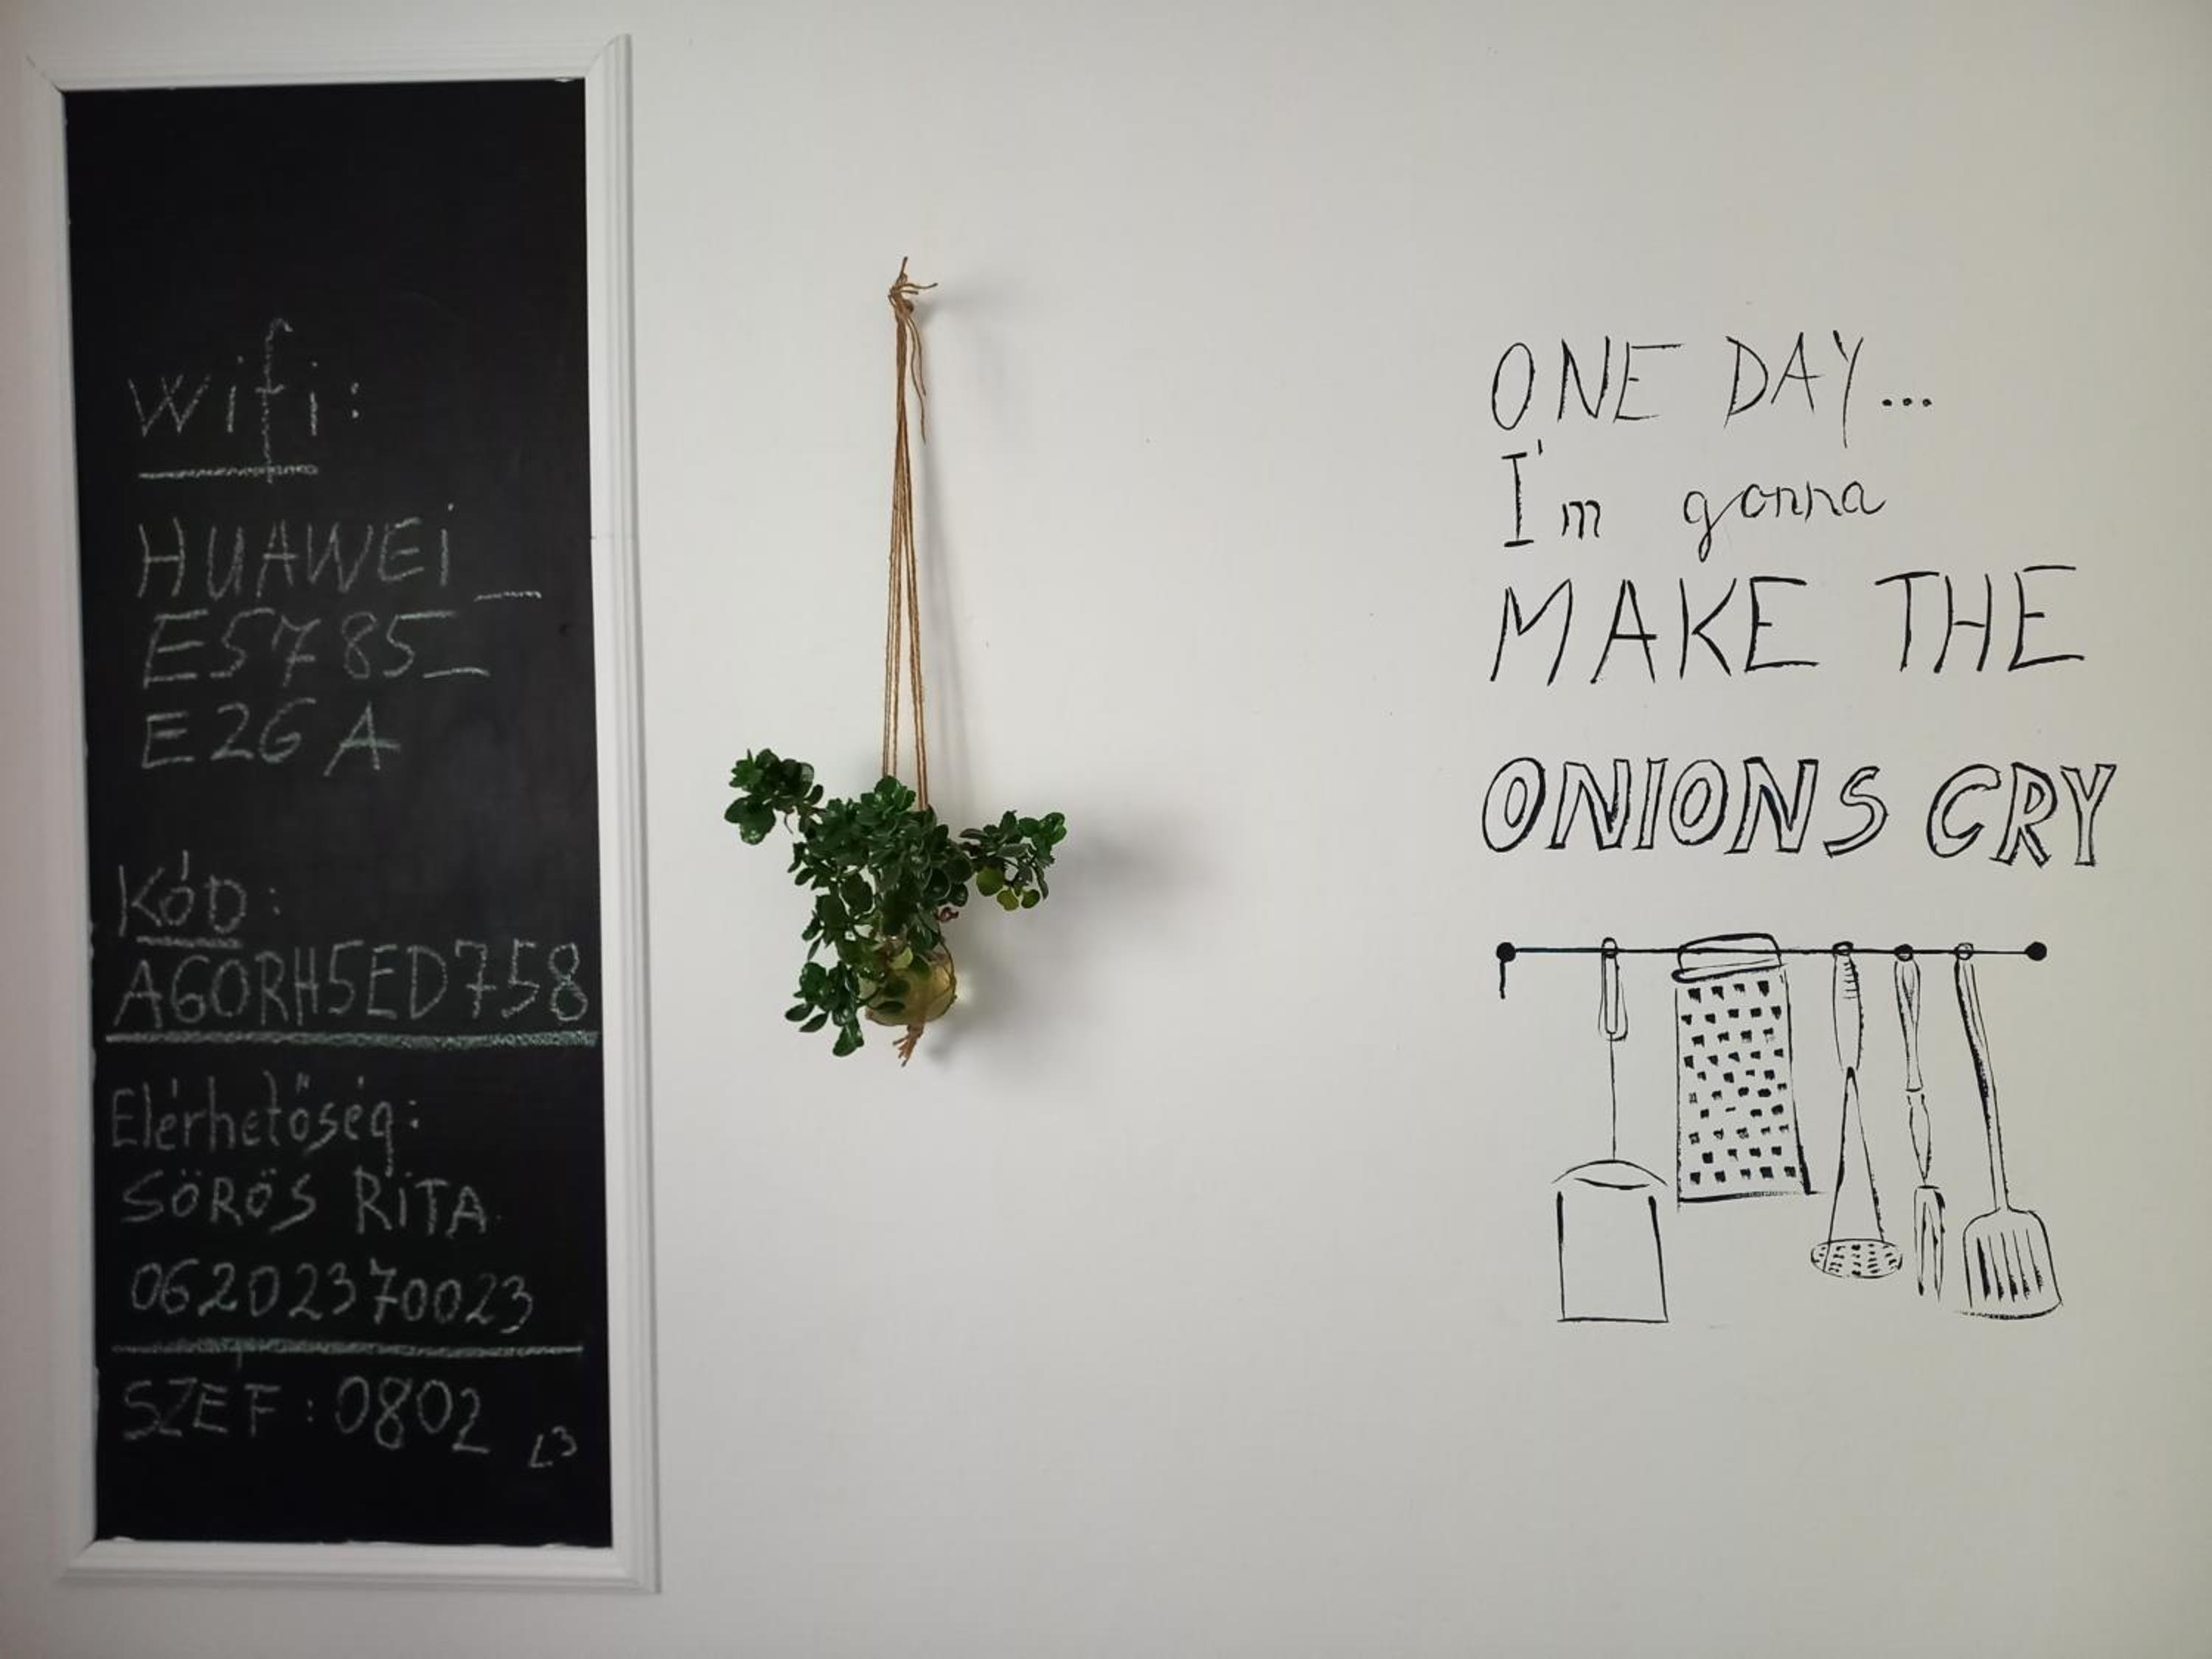 Wifi:
HUAWEi_
E5785_
E26A
KóD:
AGORH5ED758
Elérhetőség:
SÖRÖS RiTA
06202370023
SZÉF: 0802
ONE DAY...
I'm gonna
MAKE THE
ONIONS CRY